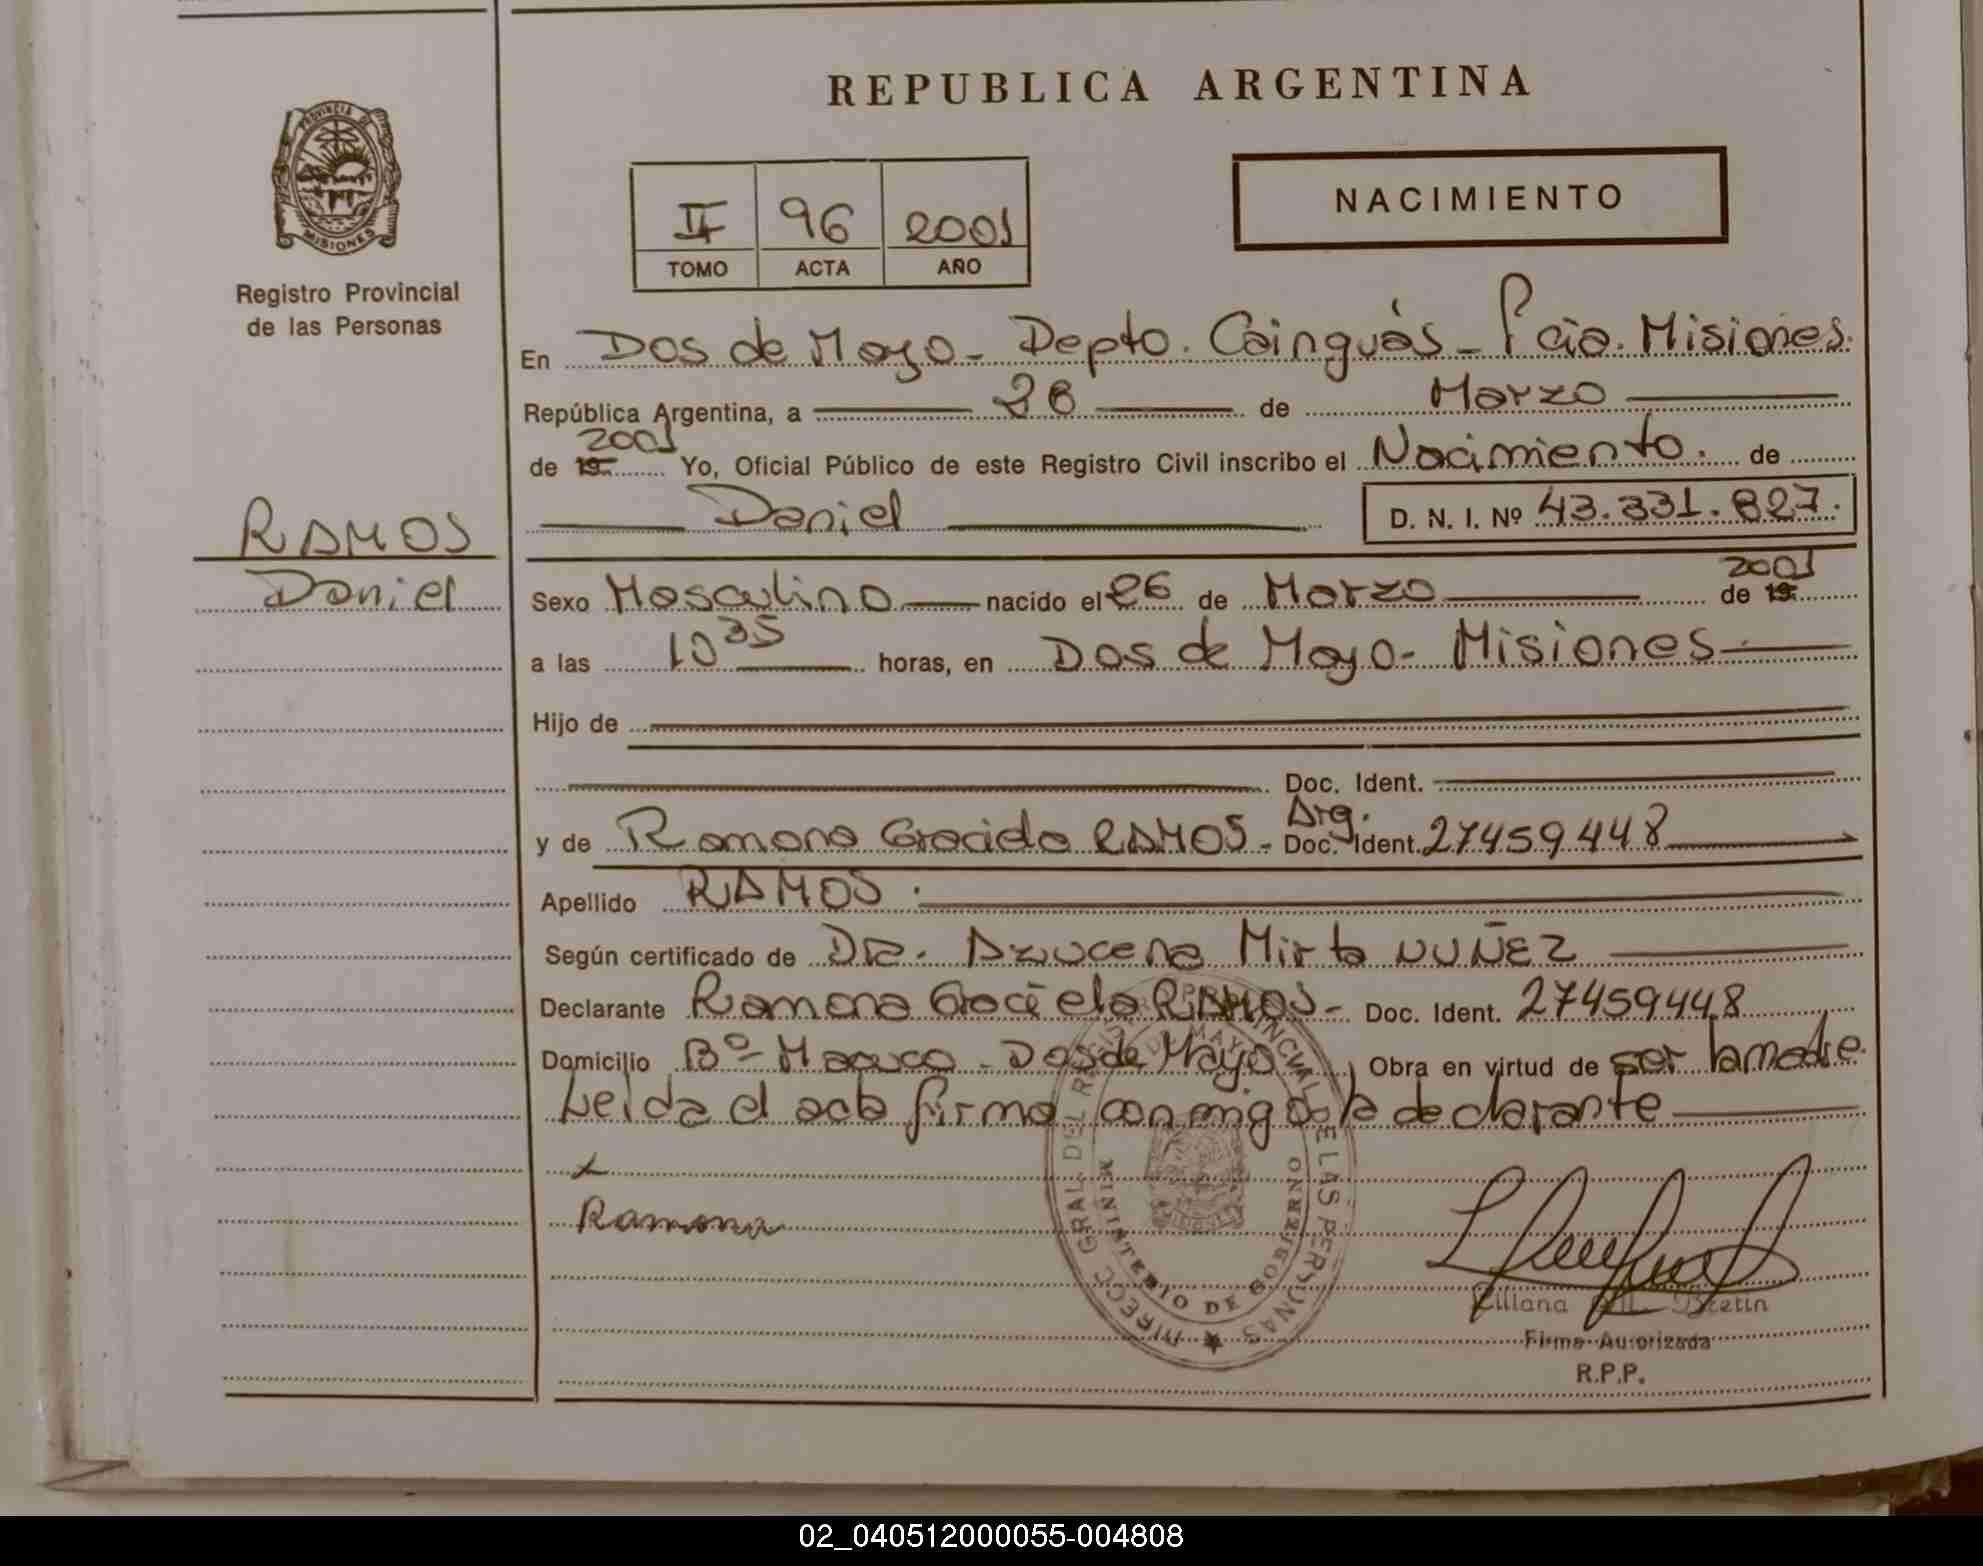 REPUBLICA ARGENTINA
PROVINCIA DE
MISIONES
Registro Provincial
de las Personas
II 96 2001
TOMO ACTA AÑO
NACIMIENTO
En Dos de Mayo - Depto. Cainguás - Pcia. Misiones.
República Argentina, a 28 de Marzo
de 19 2001 Yo, Oficial Público de este Registro Civil inscribo el Nacimiento. de
Daniel D. N. I. Nº 43.331.827.
RAMOS
Daniel
Sexo Masculino nacido el 26 de Marzo de 19 2001
a las 10 35 horas, en Dos de Mayo - Misiones
Hijo de
Doc. Ident.
y de Ramona Graciela RAMOS - Arg. Doc. Ident. 27459448
Apellido RAMOS.
Según certificado de Dra. Azucena Mirta NUÑEZ
Declarante Ramona Graciela RAMOS - Doc. Ident. 27459448
Domicilio Bº - Macuco - Dos de Mayo Obra en virtud de ser la madre.
Leida el acta firma conmigo la declarante
x
Ramona
DIRECC GRAL DEL REGISTRO PROVINCIAL DE LAS PERSONAS
DOS DE MAYO
MINISTERIO DE GOBIERNO
Liliana
Firma Autorizada
R.P.P.
02_040512000055-004808